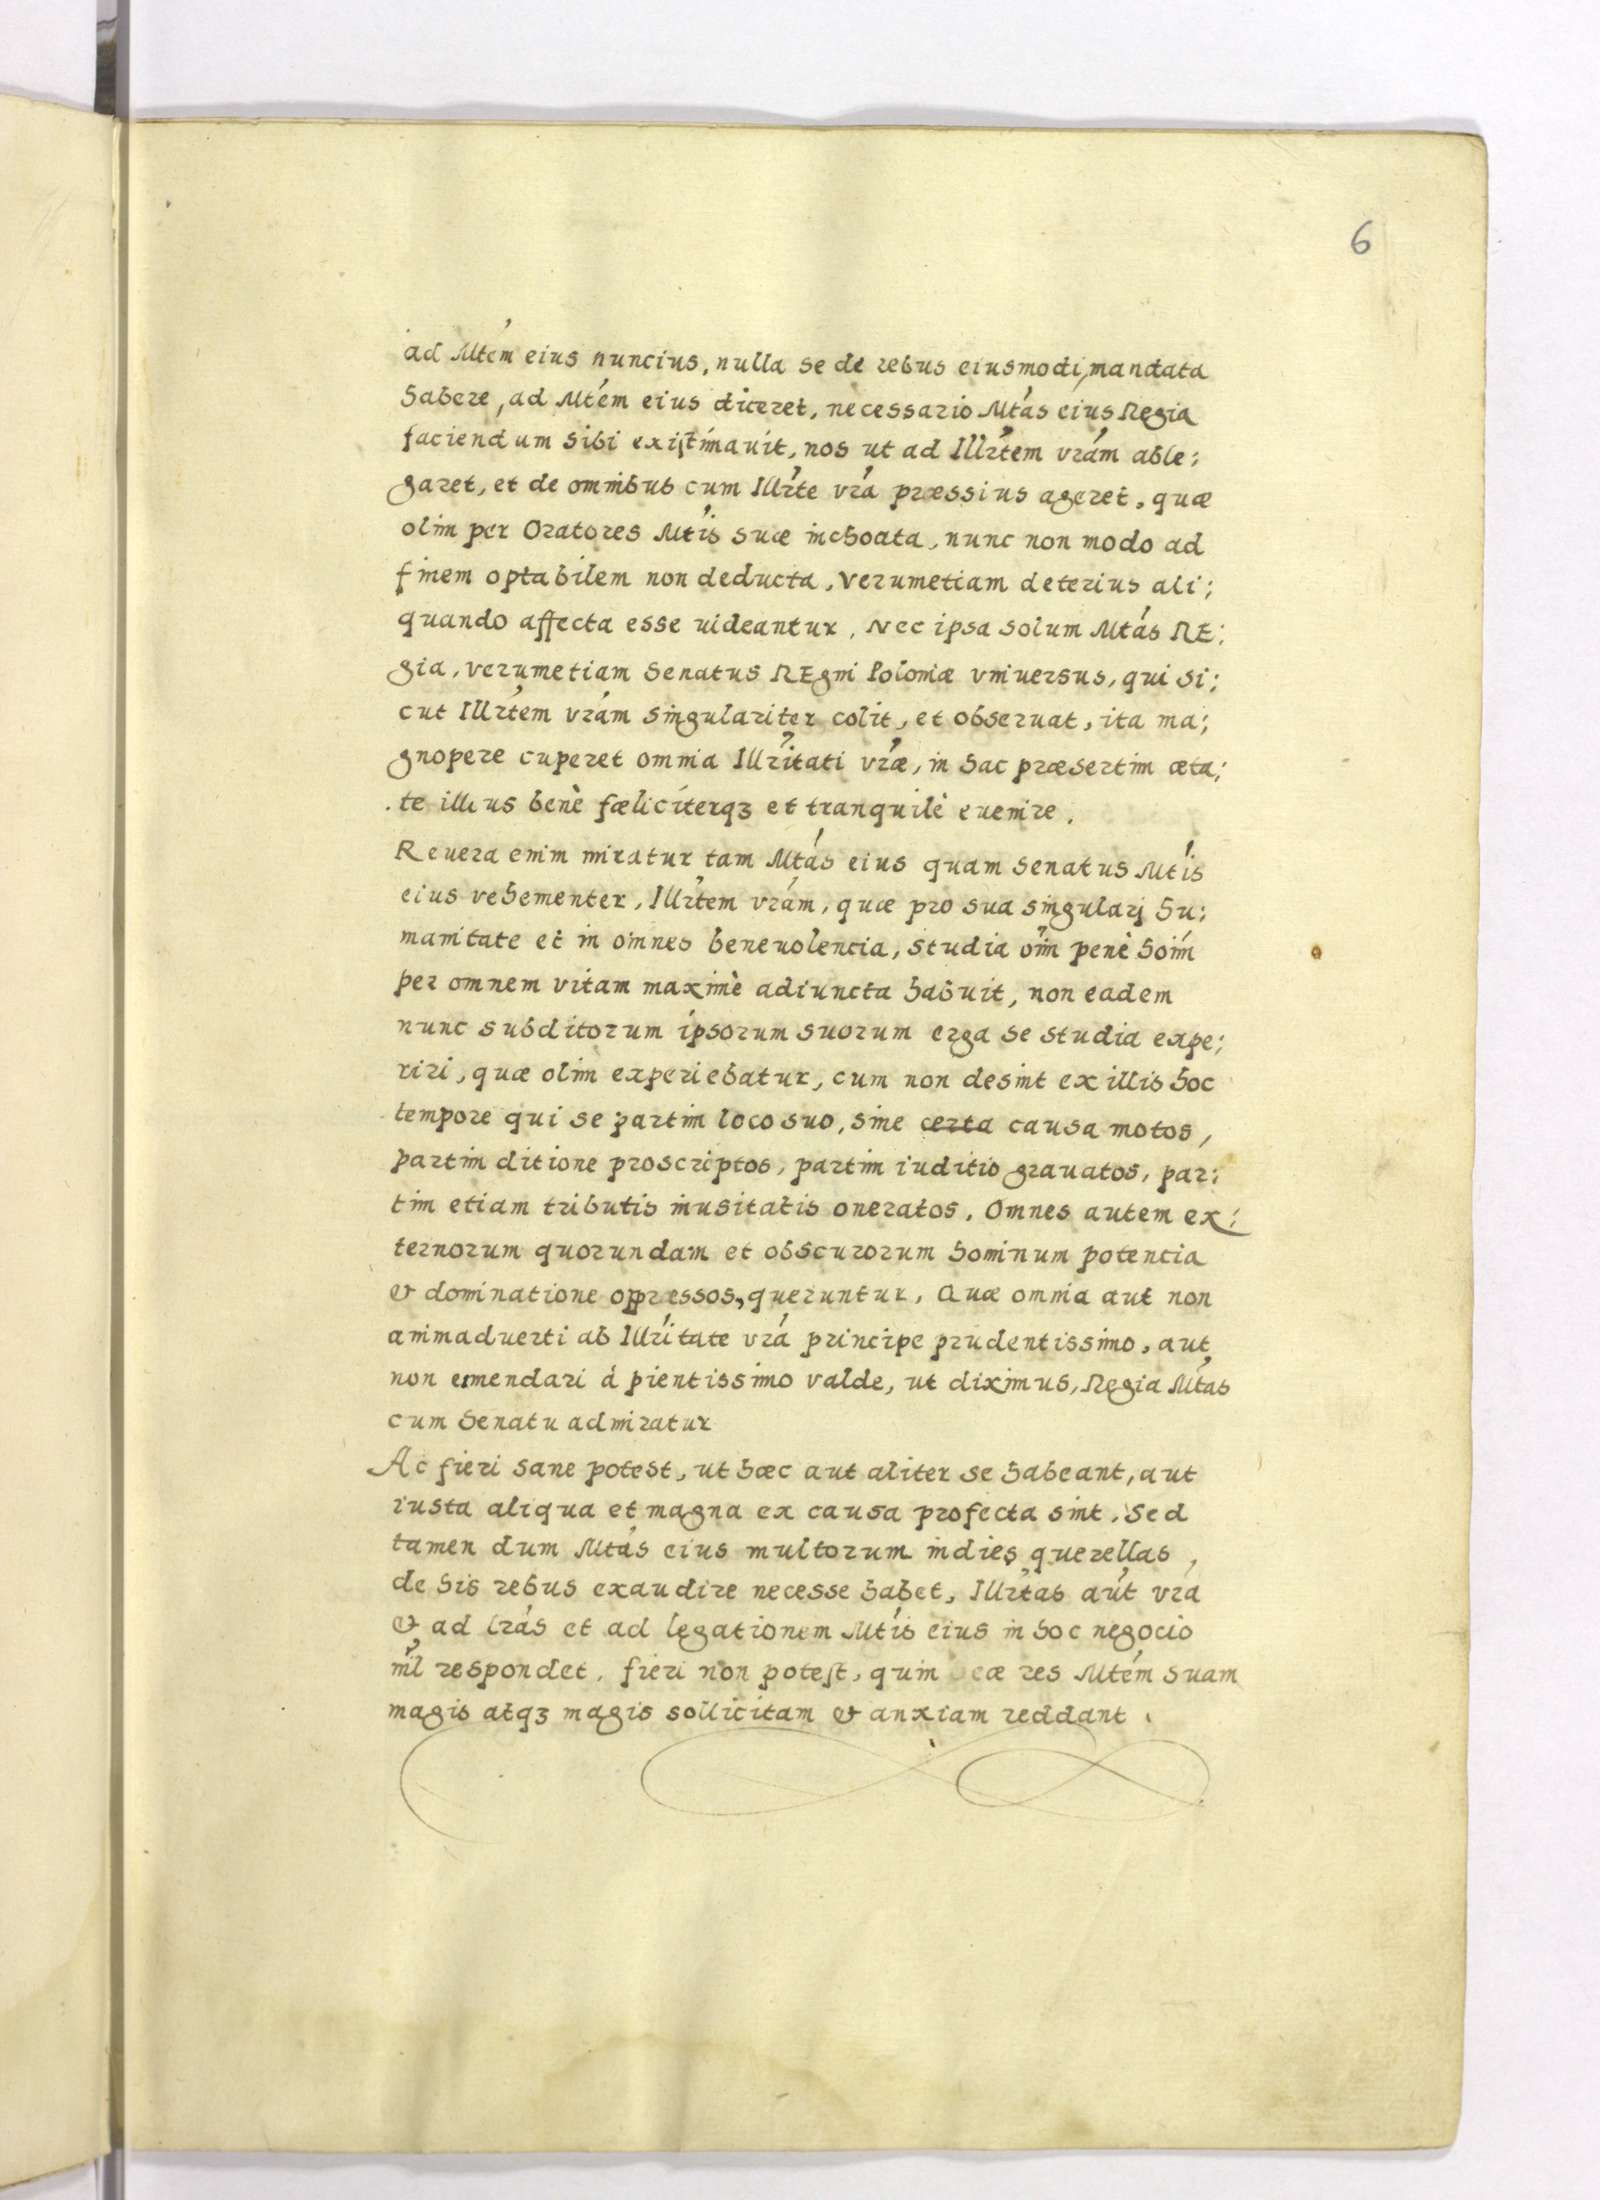 6
ad Mtém eius nuncius, nulla se de rebus eiusmodi, mandata
habere, ad Mtém eius diceret, necessario Mtás eius Regia
faciendum sibi existimauit, nos ut ad Illrtem vrám able:
garet, et de omnibus cum Illrte vrá præssius ageret, quæ
olim per Oratores Mtís suæ inchoata, nunc non modo ad
finem optabilem non deducta, verumetiam deterius ali:
quando affecta esse uideantur, Nec ipsa solum Mtás RE:
gia, verumetiam Senatus REgni Poloniæ vniuersus, qui si:
cut Illrtem vrám singulariter colit, et obseruat, ita ma:
gnopere cuperet omnia Illritati vræ, in hac præsertim æta:
te illius benè fæliciterqz et tranquilè euenire.
Reuera enim miratur tam Mtás eius quam Senatus Mtís
eius vehementer, Illrtem vrám, quæ pro sua singularj hu:
manitate et in omnes beneuolencia, studia oím penè hoím
per omnem vitam maximè adiuncta habuit, non eadem
nunc subditorum ipsorum suorum erga se studia expe:
riri, quæ olim experiebatur, cum non desint ex illis hoc
tempore qui se partim loco suo, sine certa causa motos,
partim ditione proscriptos, partim iuditio grauatos, par:
tim etiam tributis inusitatis oneratos. Omnes autem ex:
ternorum quorundam et obscurorum hominum potencia
& dominatione oppressos, queruntur, Quæ omnia aut non
animaduerti ab Illritate vrá principe prudentissimo, aut
non emendari á pientissimo valde, ut diximus, Regia Mtás
cum Senatu admiratur
Ac fieri sane potest, ut hæc aut aliter se habeant, aut
iusta aliqua et magna ex causa profecta sint, Sed
tamen dum Mtás eius multorum indies querellas,
de his rebus exaudire necesse habet, Illrtas aút vrá
& ad lrás et ad legationem Mtís eius in hoc negocio
níl respondet, fieri non potest, quin eæ res Mtém suam
magis atqz magis sollicitam & anxiam reddant.